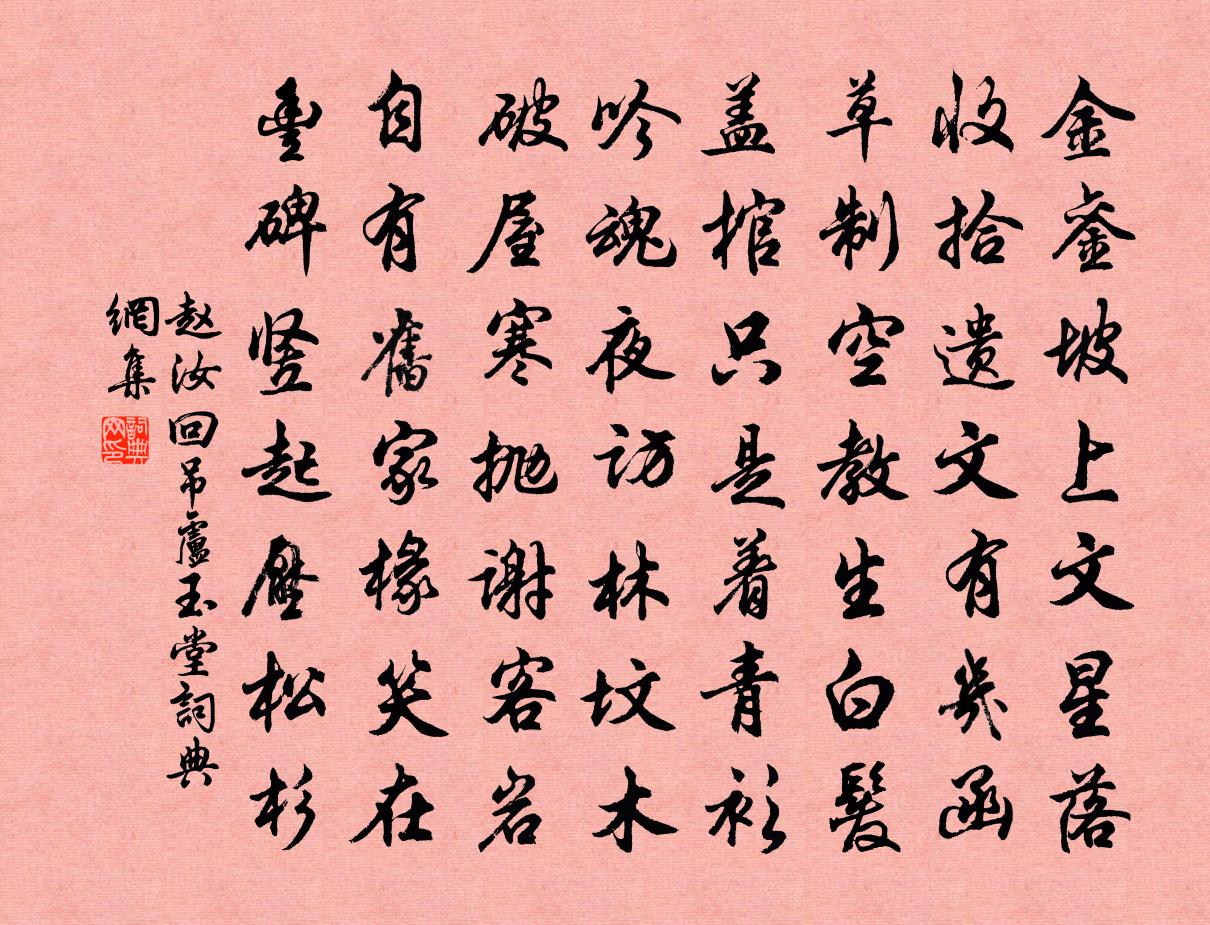 金銮坡上文星落
收拾遗文有几函
草制空教生白髮
盖棺只是着青衫
吟魂夜访林坟木
破屋寒抛谢客岩
自有舊家椽笑在
豊碑竖起壓松杉
赵汝回吊盧玉堂詞典
網集
詞典網印